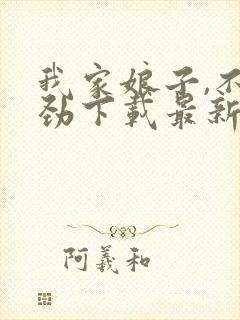 我家娘子,不
劲下载最新
阿羲和